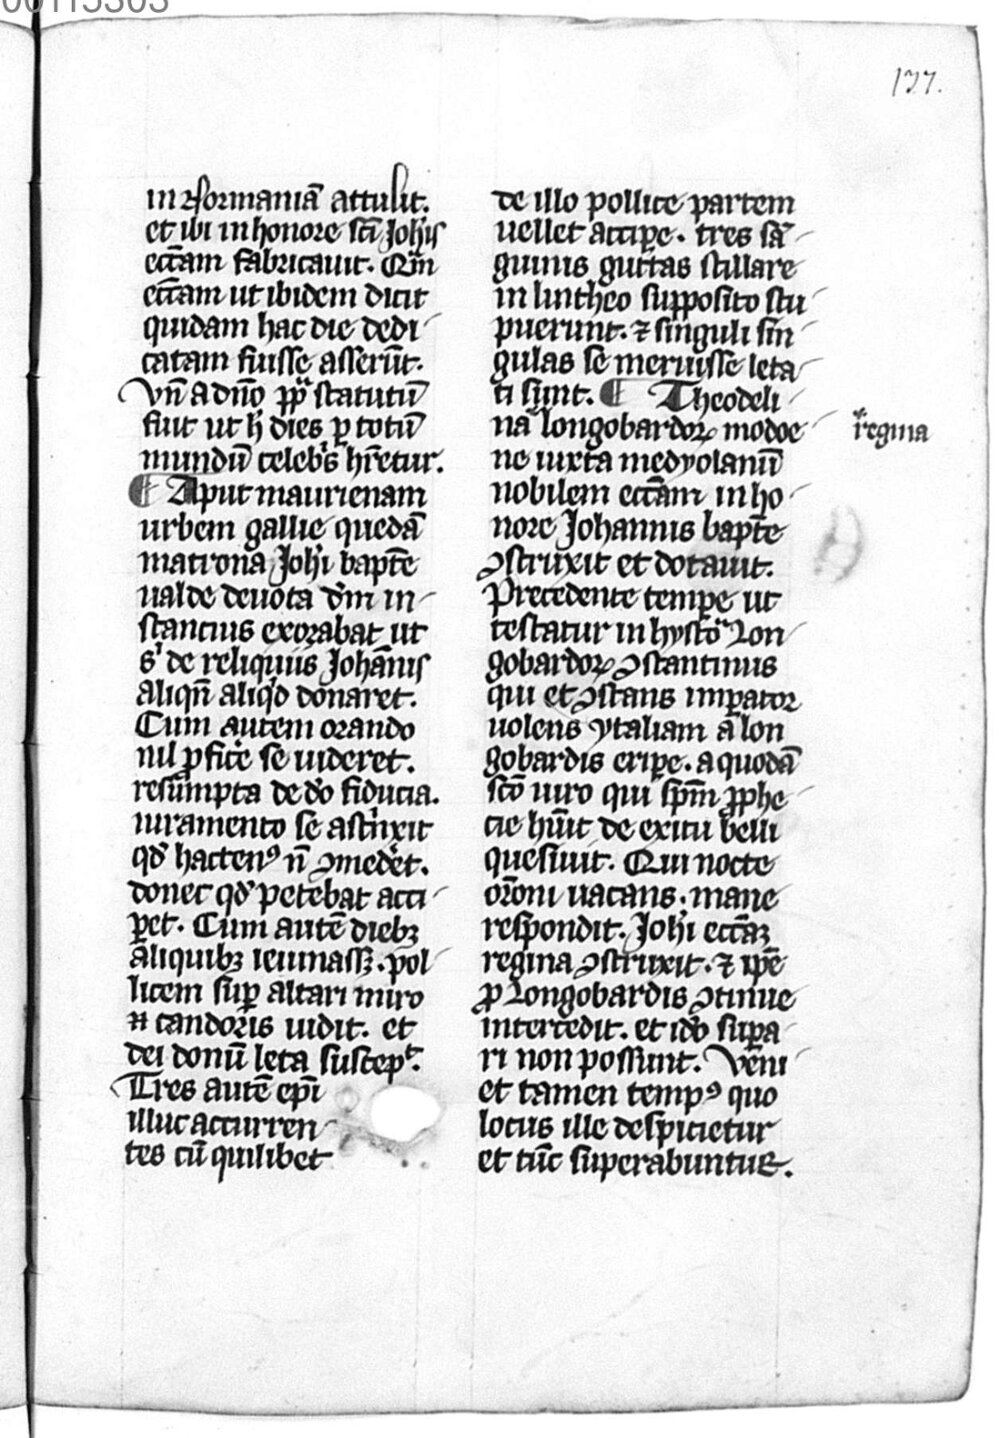 00115303
177.
in normaniā attulit.
et ibi in honore sc̄i Joh̄is
ecc̄am fabricauit. Qm̄
ecc̄am ut ibidem dicit
quidam hac die dedi
catam fuisse asserūt.
Vn̄ a dn̄o ꝓp̄t statutū
fuit ut h̄ dies ꝑ totū
mundū celebͥs hr̄etur.
¶ Aput maurienam
urbem gallie quedā
matrona Joh̄i bapt̄e
ualde deuota dm̄ in
stancius exorabat ut
sͥ de reliquiis Johānis
aliqn̄ aliqͥd donaret.
Cum autem orando
nil ꝓficͤe se uideret.
resūmpta de dō fiducia.
iuramento se astͥnxit
qd̓ hactenꝰ n̄ ꝯmedͤet.
donec qd̓ petebat acci
ꝑet. Cum autē diebꝫ
aliquibꝫ ieiunassꝫ. pol
licem suꝑ altari miro
candoris uidit. et
dei donū leta suscepͭ.
Tres autē ep̄i
illuc accurren
tes cū quilibet
de illo pollice partem
uellet acciꝑe. tres sā
guinis guttas stillare
in lintheo supposito stu
puerunt. ⁊ singuli sin
gulas se meruisse leta
ti sunt. ¶ Theodeli
na longobardoꝝ modoe
regina
ne iuxta medyolanū
nobilem ecc̄am in ho
nore Johannis bapt̄e
ꝯstruxit et dotauit.
Precedente temꝑe ut
testatur in hystoͣ Lon
gobardoꝝ ꝯstantinus
qui et ꝯstans imꝑator
uolens ytaliam a lon
gobardis eriꝑe. a quodā
sc̄o uiro qui sp̄m ꝓphe
cie hūit de exitu belli
quesiuit. Qui nocte
or̄oni uacans. mane
respondit. Joh̄i ecc̄aꝫ
regina ꝯstruxit. ⁊ ip̄e
ꝓ Longobardis ꝯtinue
intercedit. et idō suꝑa
ri non possunt. Veni
et tamen tempꝰ quo
locus ille despicietur
et tūc superabuntur.